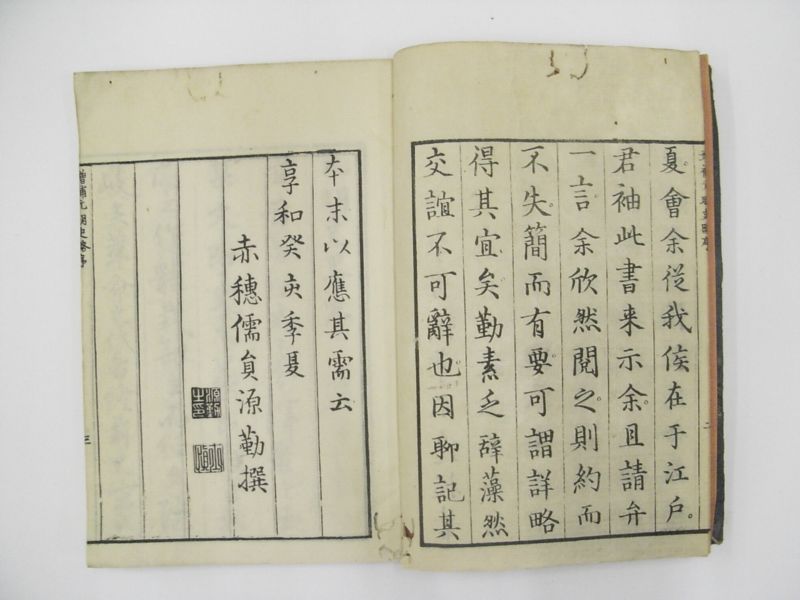 夏會余從我侯在于江戶。
君袖此書来示余。且請弁
一言余欣然閱之。則約而
不失簡而有要可謂詳略
得其宜矣勤素乏辞藻然
交誼不可辭也因聊記其
二
本末以應其需云
享和癸亥季夏
赤穗儒員源勤撰
增補元明史畧序
三